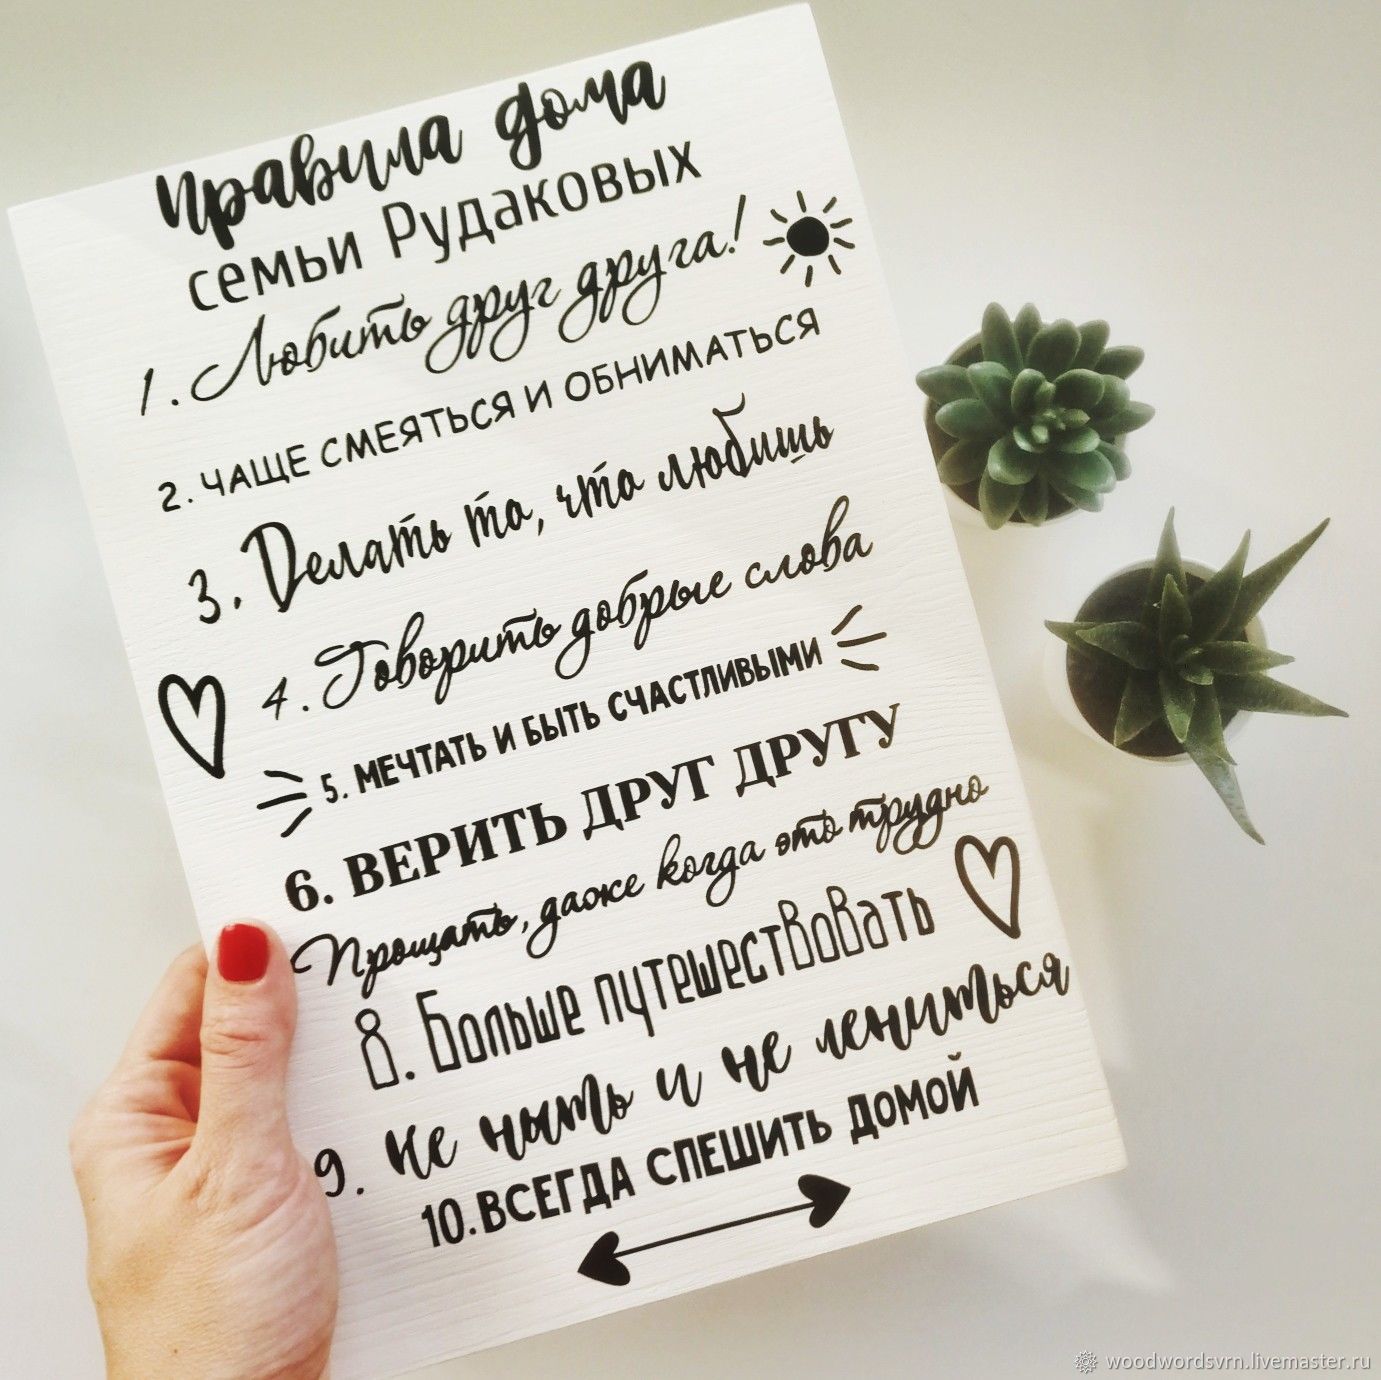 правила дома
семьи Рудаковых
1. Любить друг друга!
2. ЧАЩЕ СМЕЯТЬСЯ И ОБНИМАТЬСЯ
3. Делать то, что любишь
4. Говорить добрые слова
5. МЕЧТАТЬ И БЫТЬ СЧАСТЛИВЫМИ
6. ВЕРИТЬ ДРУГ ДРУГУ
Прощать, даже когда это трудно
8. Больше путешествовать
9. не ныть и не лениться
10. ВСЕГДА СПЕШИТЬ ДОМОЙ
woodwordsvrn.livemaster.ru